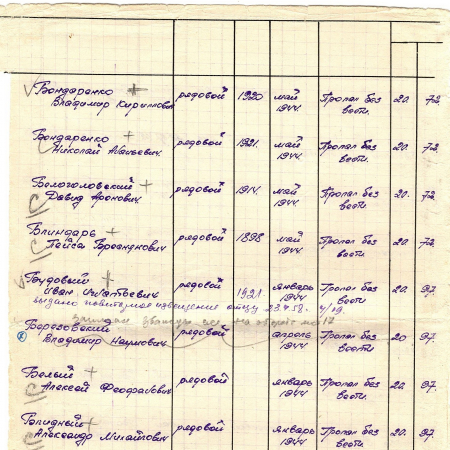 Бондаренко рядовой 1920 май Пропал без 20. 72
Владимир Кириллович 1944 вести.
Бондаренко рядовой 1921. май Пропал без 20. 72
Николай 1944 вести.
Белоголовский рядовой 1914. май Пропал без 20. 72
Давид Аронович 1944 вести.
Блиндарь рядовой 1898 май Пропал без 20. 72
1944 вести.
рядовой 1921. январь Пропал без 20. 97.
Иван Игнатьевич 1944 вести
выдано извещение отцу 23.4.58.
Березовский рядовой апрель Пропал без 20 97.
Владимир Наумович 1944 вести
Белый рядовой январь Пропал без 20. 97.
Алексей 1944 вести.
рядовой январь Пропал без 20. 97.
Александр 1944 вести